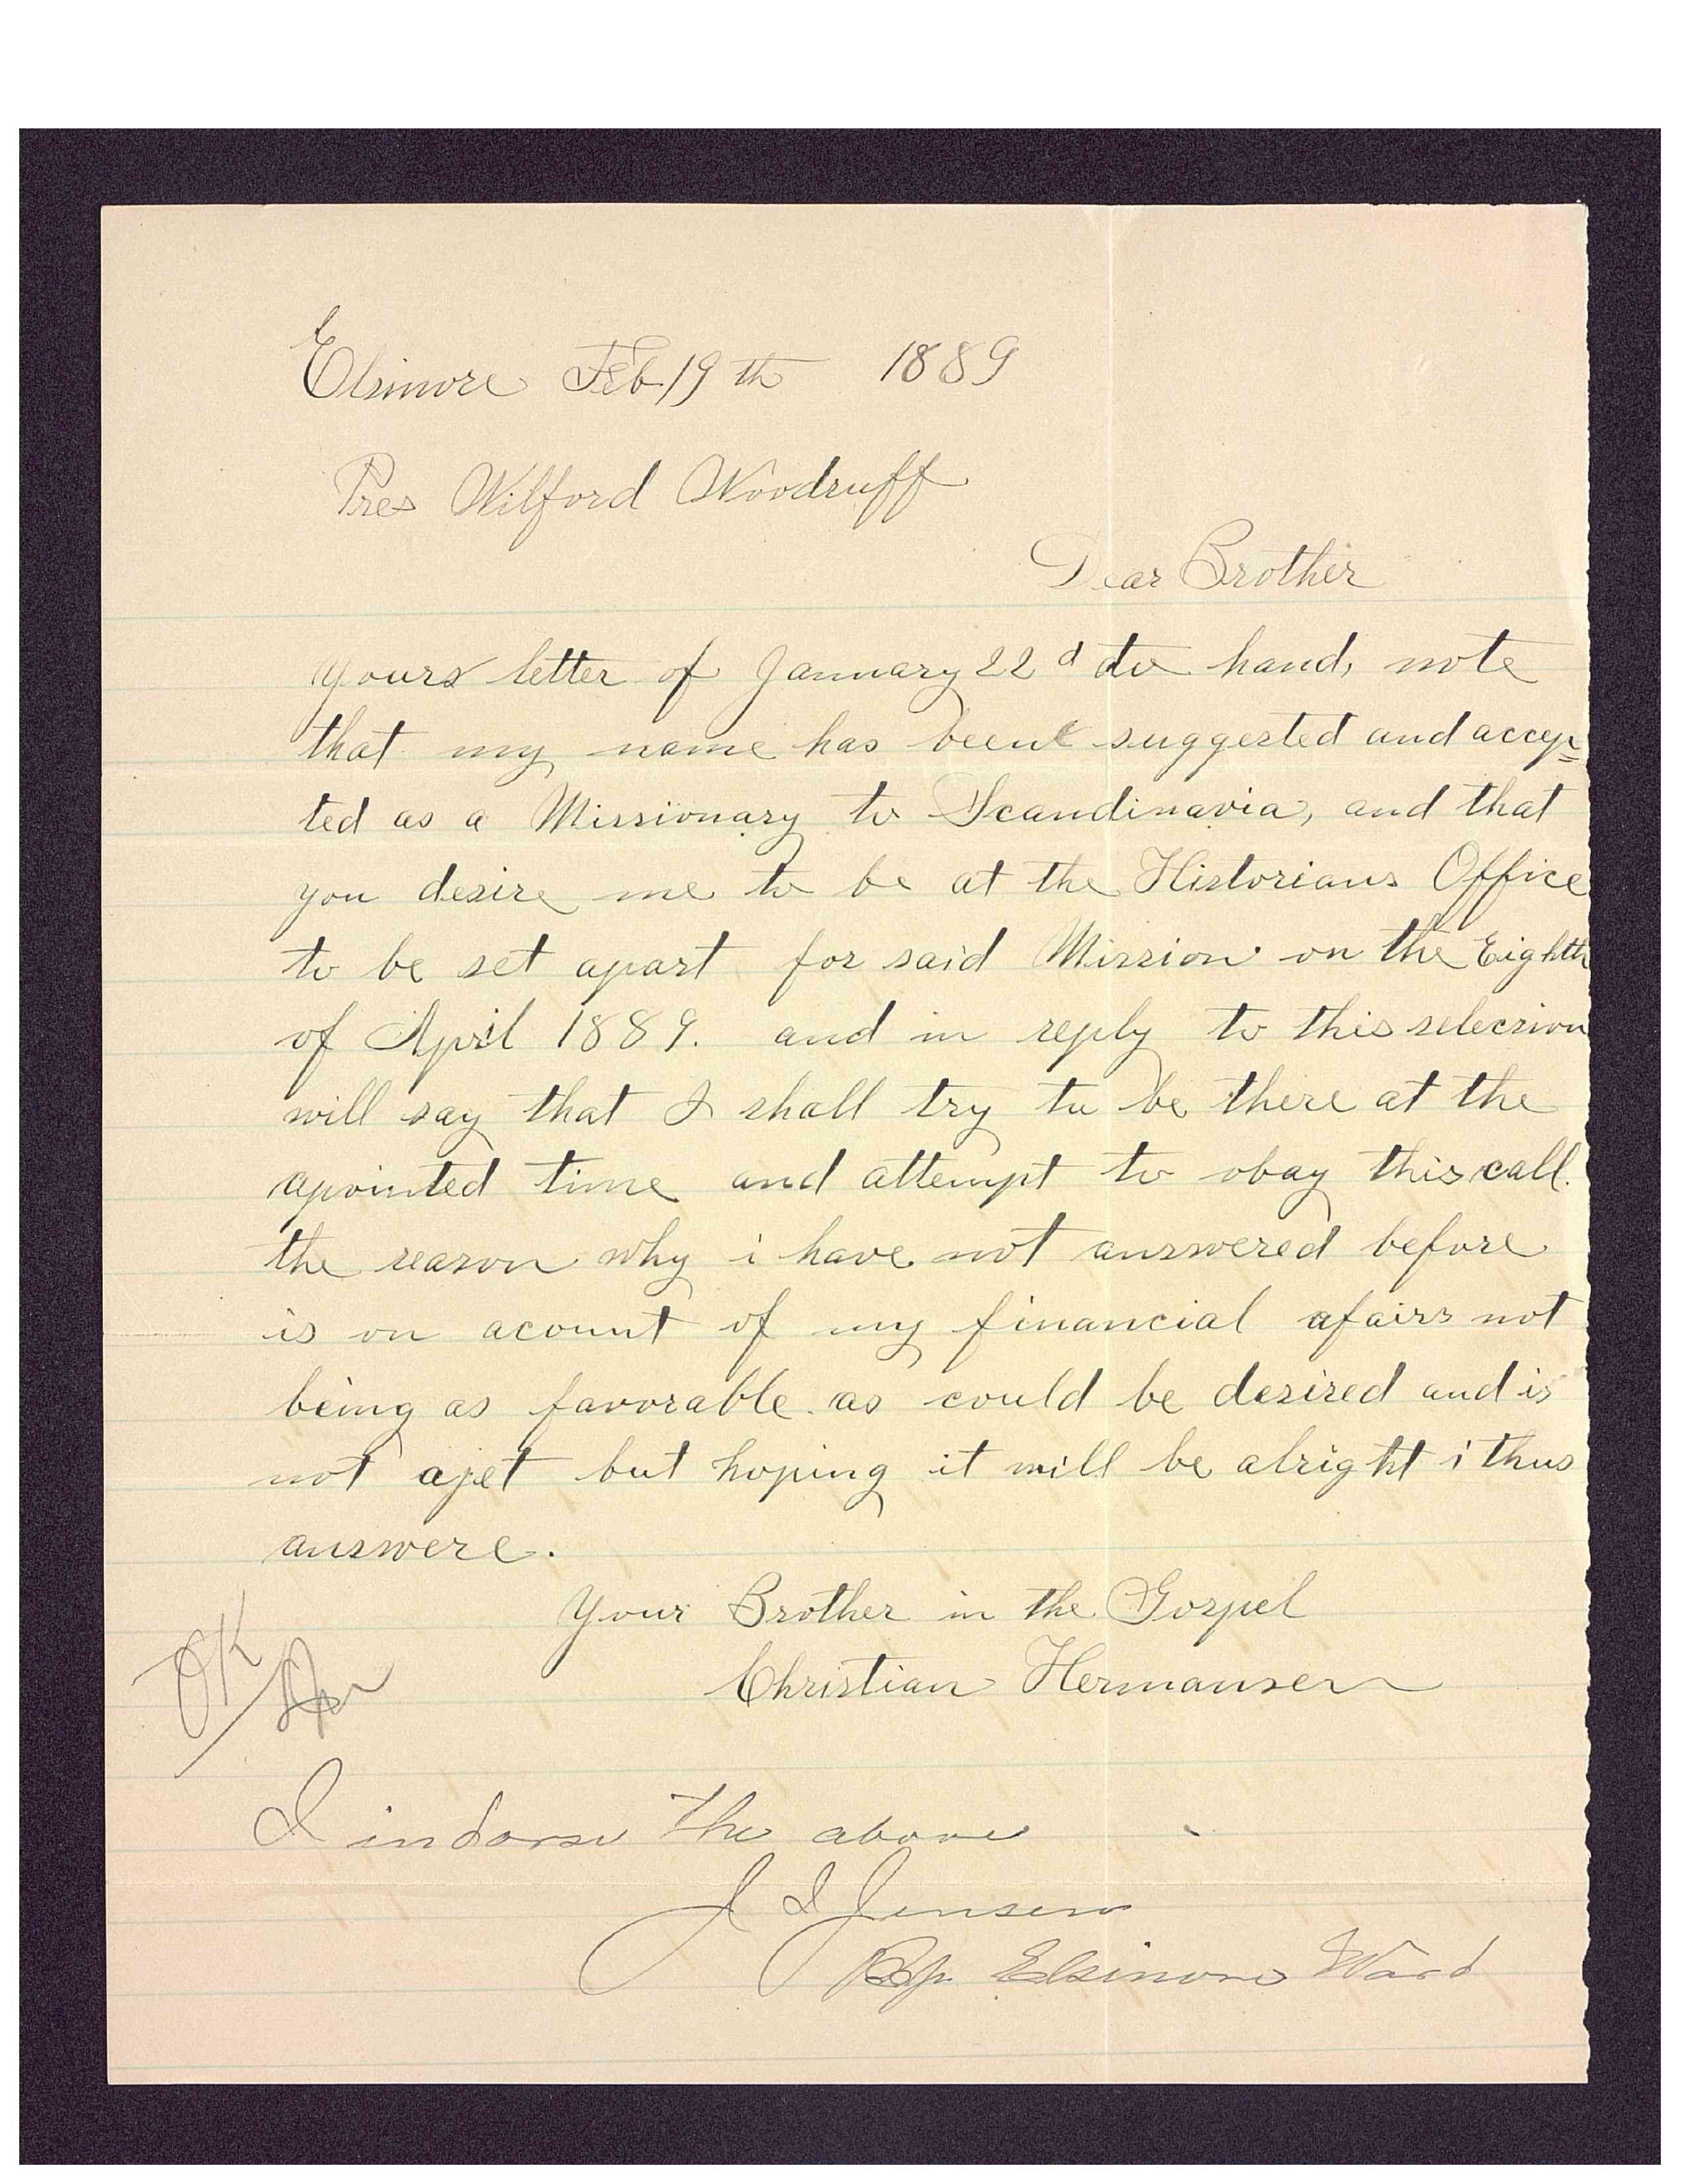 Elsinore Feb 19th 1889
Pres Wilford Woodruff
Dear Brother
yours letter of January 22d to hand, note
that my name has been suggested and accep=
ted as a Missionary to Scandinavia, and that
you desire me to be at the Historians Office
to be set apart for said Mission on the Eighth
of April 1889. and in reply to this selecsion
will say that I shall try to be there at the
apointed time and attempt to obay this call.
the reason why i have not answered before
is on acount of my financial afairs not
being as favorable as could be desired and is
not ajet but hoping it will be alright i thus
answere.
Your Brother in the Gospel
Christian Hermansen
OK
I indorse the above
J I Jensen
Bp. Elsinore Ward